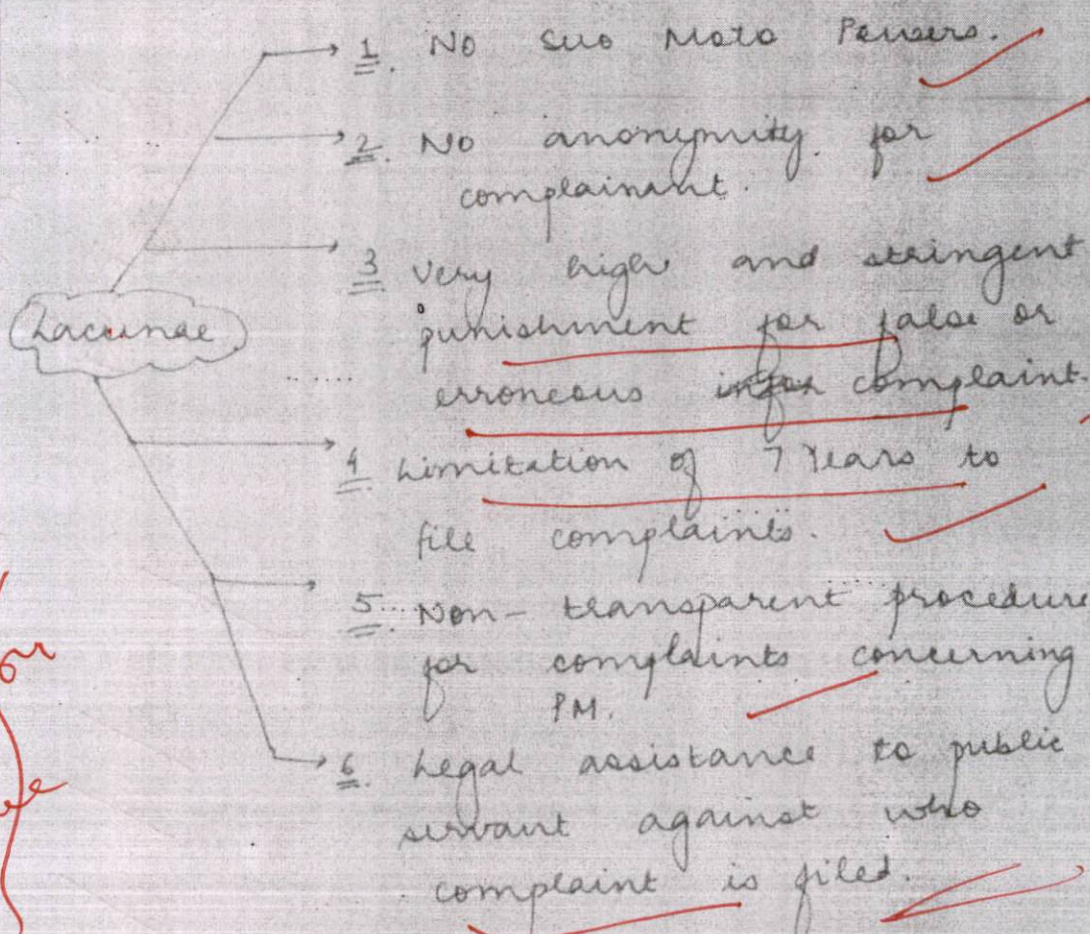 1. No Suo Moto Powers.
2. No anonymity for
complainant.
3 Very high and stringent
punishment for false or
Lacunae
erroneous complaint.
4. Limitation of 7 Years to
file complaints.
5. Non-transparent procedure
for complaints concerning
PM.
6. Legal assistance to public
servant against who
complaint is filed.